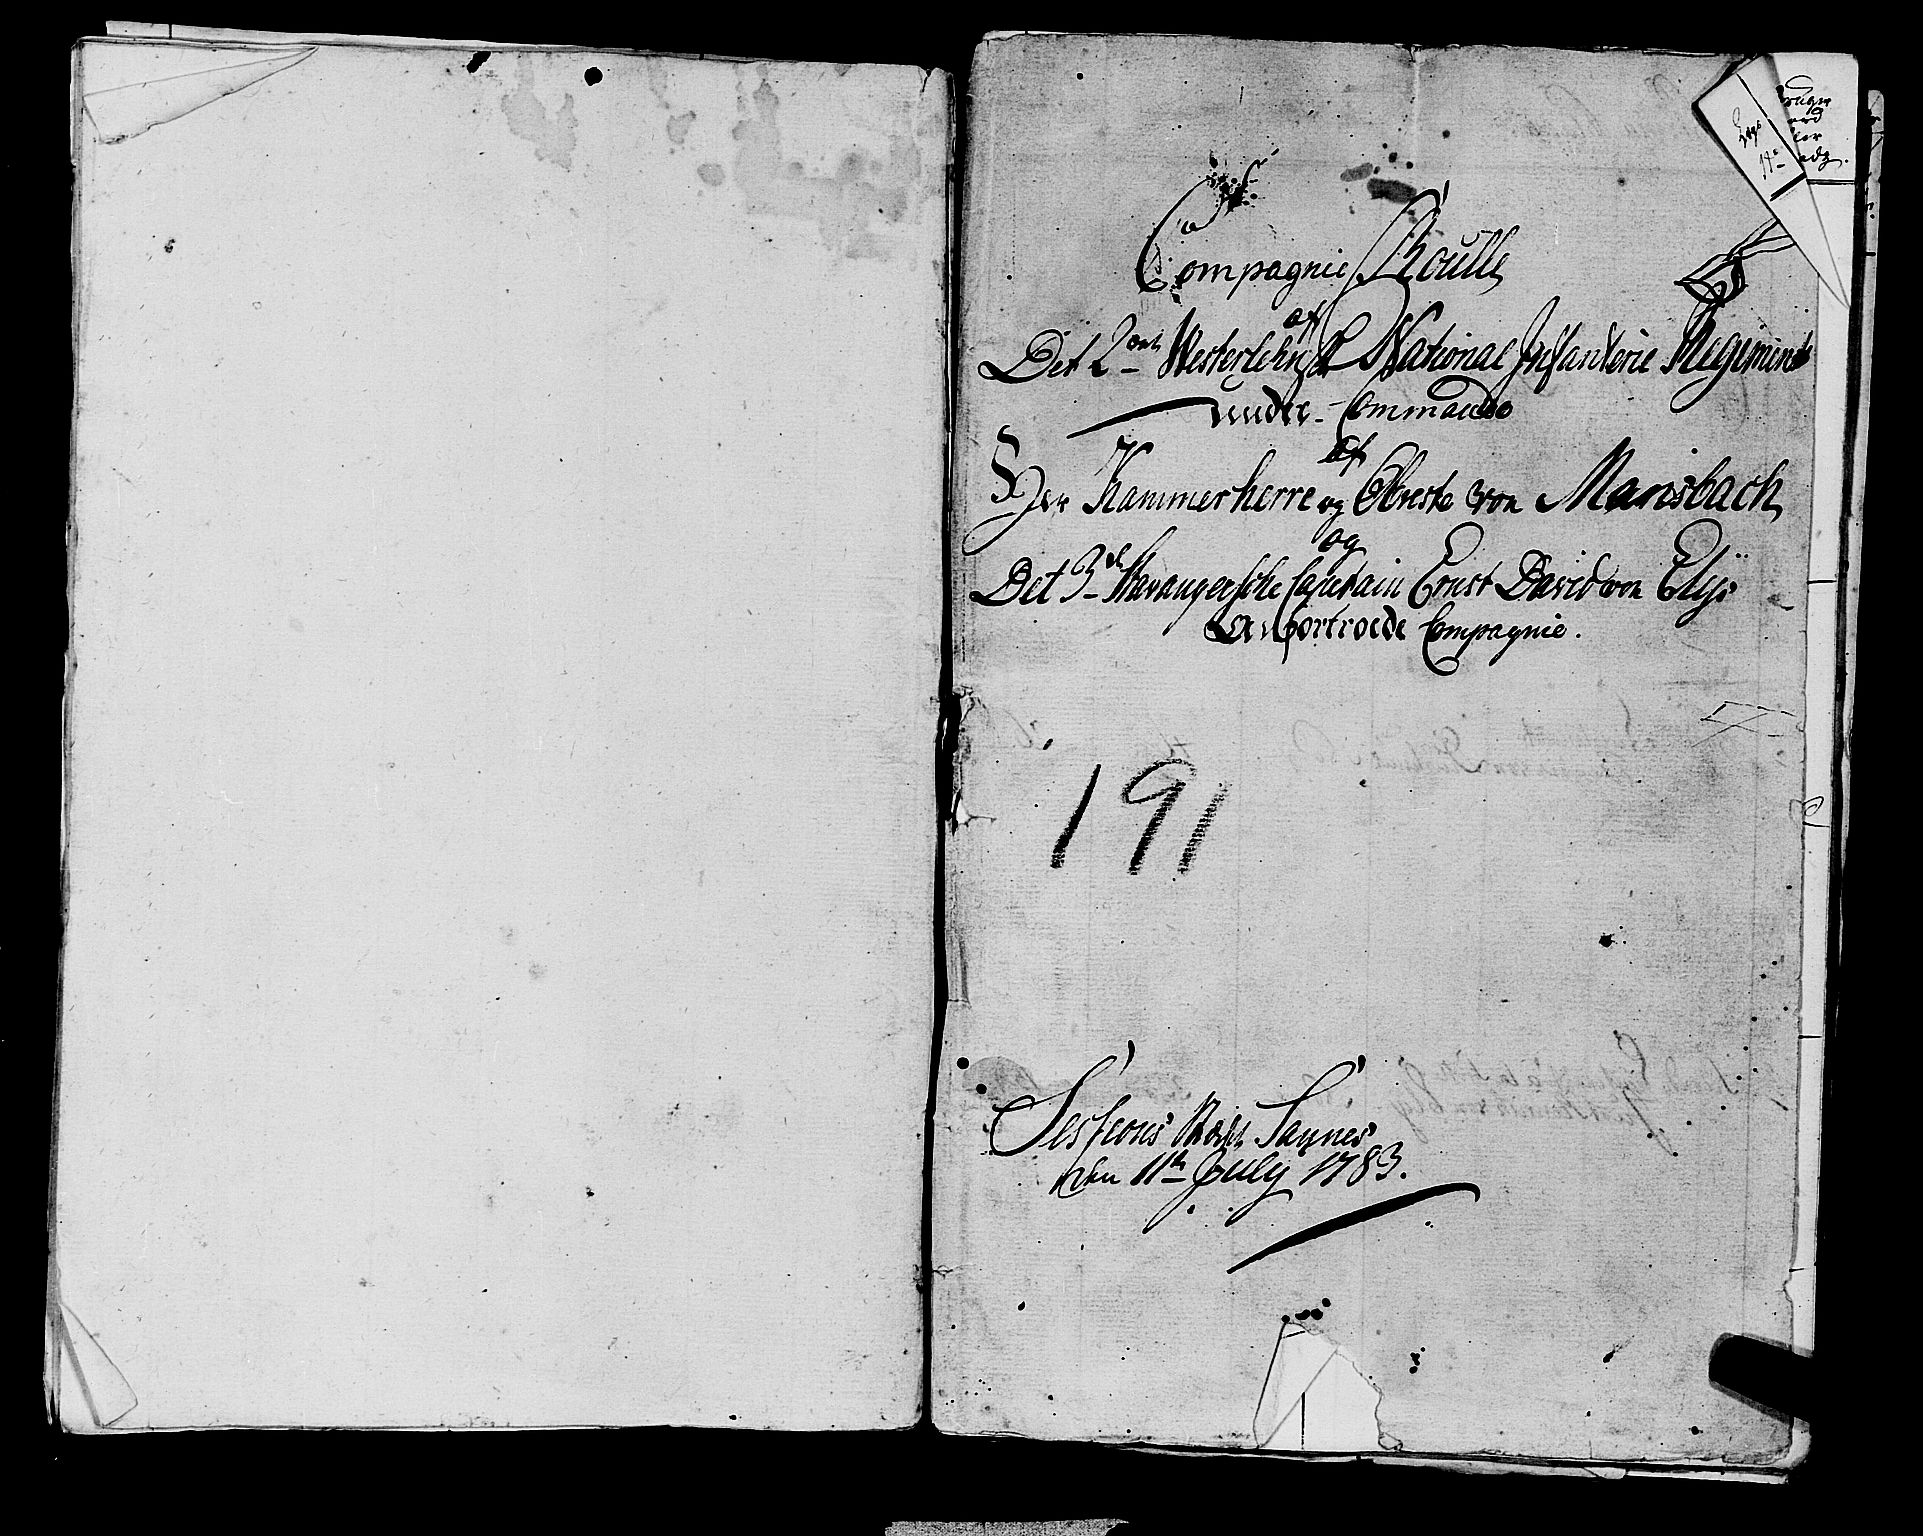 Compagnie Roulle
af
Det 2det Westerlehnske National Infanterie Regiment
under Commando
af
Hr Kammerherre og Obreste von Mansbach
og
Det 3de Stavangersche Capitain Ernst David von Elys
Anfortroede Compagnie.
191
Sessions Saynes
den 11te July 1783.